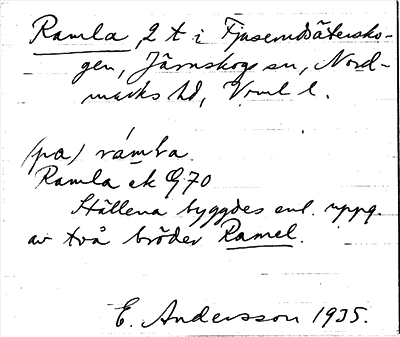 Ramla, 2 t i Tjusemdsätersko-
gen, Järnskogs sn, Nord-
marks hd, Vrml l.
(pa) ramba.
Ramla ek G70
Ställena byggdes enl. uppg.
av två bröder Ramel.
E. Andersson 1935.